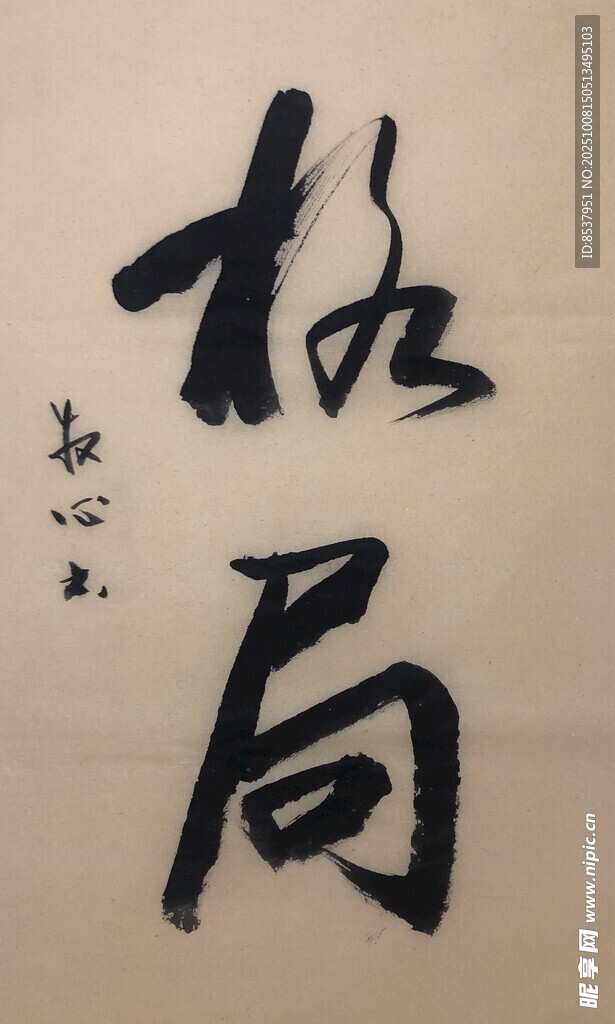 格局
牧心书
ID:8537951 NO:20251008150513495103
昵享网 www.nipic.cn